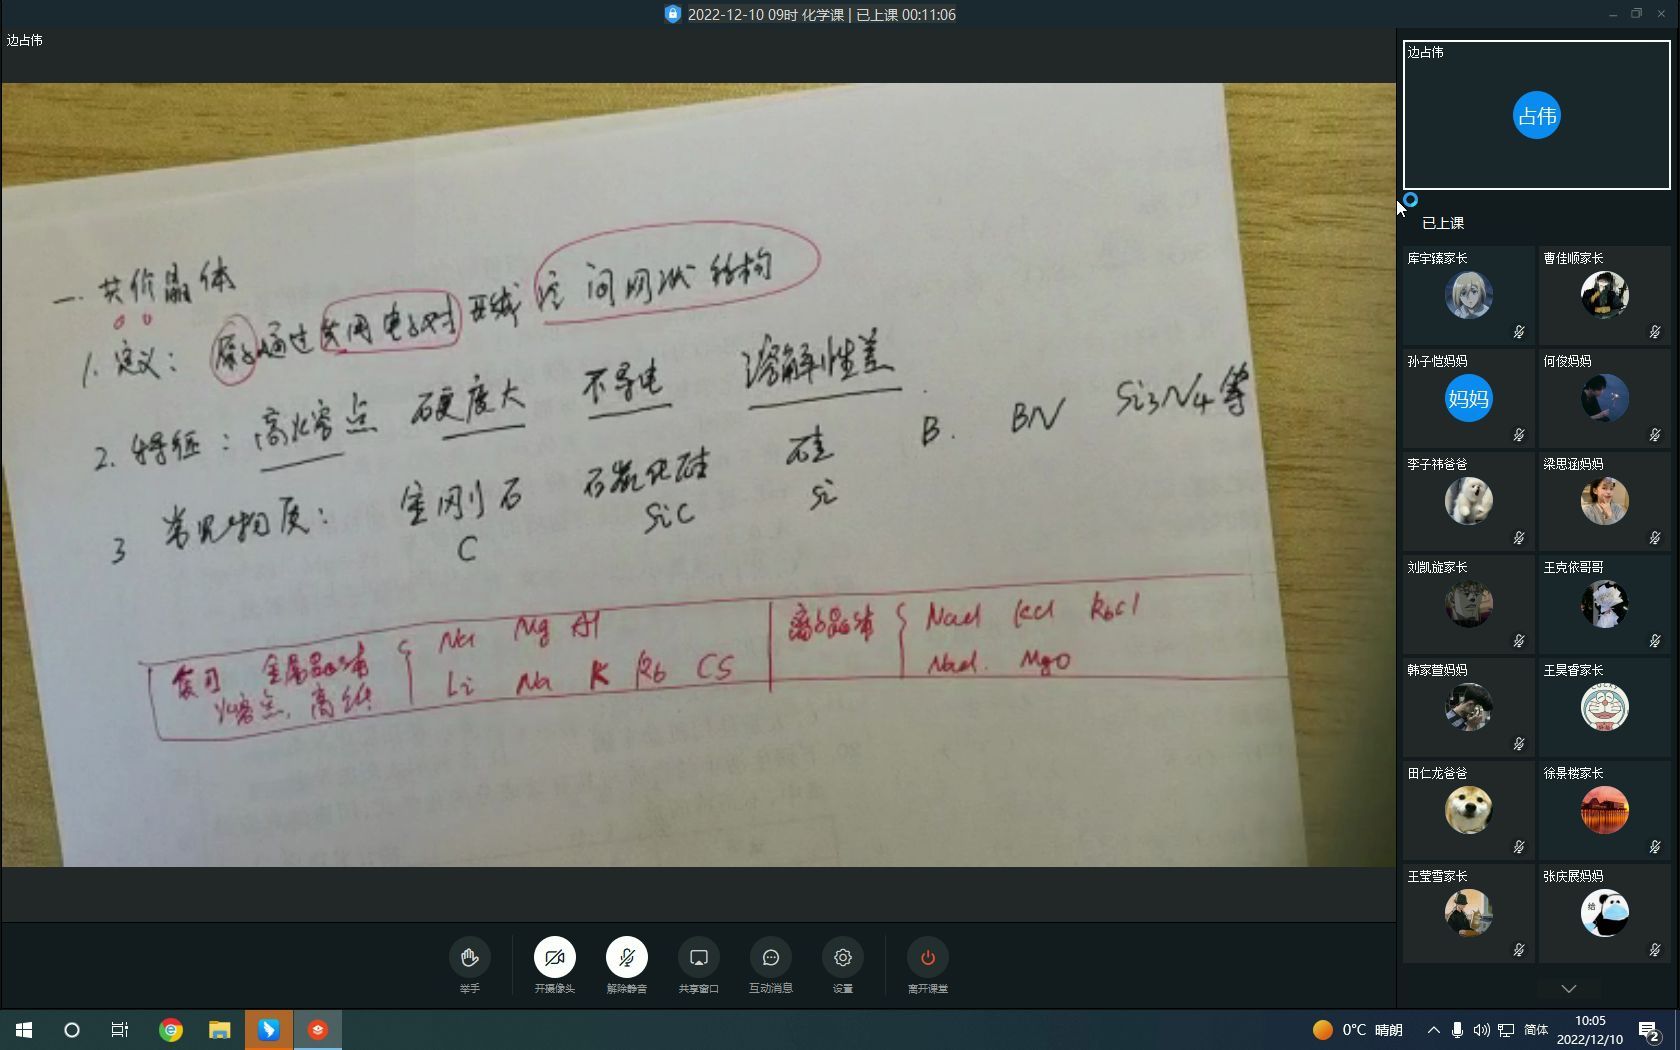 2022-12-10 09时 化学课 | 已上课 00:11:06
边占伟
一. 共价晶体
1. 定义: 原子通过共用电子对形成空间网状结构
2. 特征: 高熔点 硬度大 不导电 溶解性差.
3 常见物质: 金刚石 碳化硅 硅 B. BN Si3N4等
C SiC Si
复习 金属晶体
熔点, 高低
Na Mg Al
Li Na K Rb CS
离子晶体
NaCl KCl RbCl
NaCl. MgO
边占伟
占伟
已上课
库宇臻家长
曹佳顺家长
孙子恺妈妈
妈妈
何俊妈妈
李子祎爸爸
梁思涵妈妈
刘凯旋家长
王克依哥哥
韩家萱妈妈
王昊睿家长
田仁龙爸爸
徐景楼家长
王莹雪家长
张庆展妈妈
举手
开摄像头
解除静音
共享窗口
互动消息
设置
离开课堂
0°C 晴朗
简体
10:05
2022/12/10
2